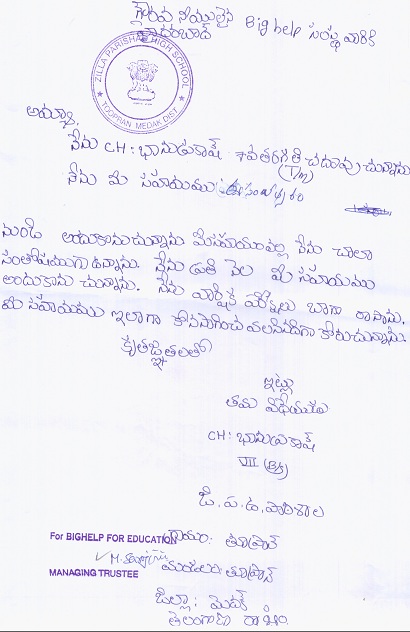 గౌరవ నీయులైన Big help సంస్థ వారికి
ZILLA PARISHAD HIGH SCHOOL
TOOPRAN MEDAK DIST
అయ్యా,
నేను CH: భానుప్రకాష్ 7వతరగతి చదువు చున్నాను
(T/m)
నేను మీ సహాయము
నుండి అందుకొనుచున్నాను మీసహాయంవల్ల నేను చాలా
సంతోషముగా ఉన్నాను. నేను ప్రతి నెల మీ సహాయము
అందుకొను చున్నాను. నేను వార్షిక పరీక్షలు బాగా రాసాను.
మీ సహాయము ఇలాగే కొనసాగించ వలసినదిగా కోరుచున్నాను.
కృతజ్ఞతలతో
ఇట్లు
తమ విధేయుడు
CH: భానుప్రకాష్
VII
జి. ప. ఉ. పాఠశాల
For BIGHELP FOR EDUCATION
గ్రామం: తూప్రాన్
మండలం: తూప్రాన్
MANAGING TRUSTEE
జిల్లా: మెదక్
తెలంగాణ రాష్ట్రం